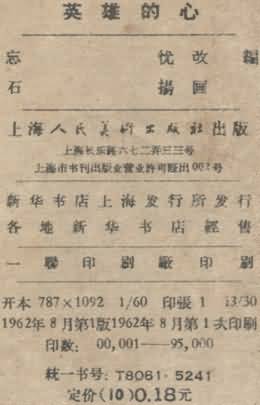 英雄的心
忘忧改编
石扬画
上海人民美術出版社出版
上海长乐路六七二弄三三号
上海市书刊出版业营业許可証出002号
新华书店上海发行所发行
各地新华书店經售
一聯印刷厰印刷
开本 787×1092 1/60 印張 1 13/30
1962年8月第1版1962年8月第1次印刷
印数：00,001——95,000
統一书号：T8081·5241
定价(10)0.18元